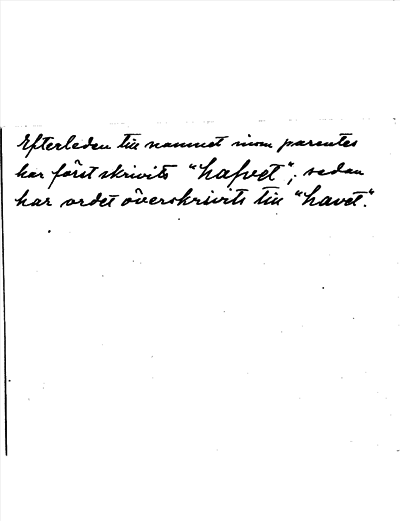 Efterleden till namnet inom parentes
har först skrivits "hafvet"; sedan
har ordet överskrivits till "havet."